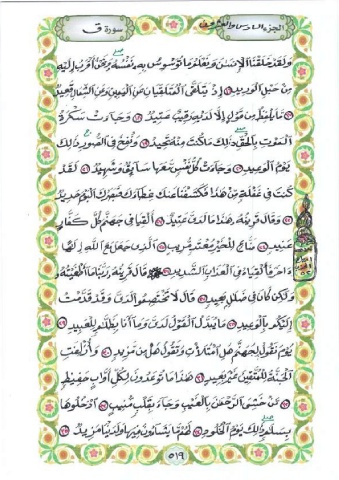 الجزء السادس والعشرون
سورة ق
ولقد خلقنا الإنسن ونعلم ما توسوس به نفسه ونحن أقرب إليه
من حبل الوريد ۝ إذ يتلقى المتلقيان عن اليمين وعن الشمال قعيد
۝ ما يلفظ من قول إلا لديه رقيب عتيد ۝ وجاءت سكرة
الموت بالحق ذلك ما كنت منه تحيد ۝ ونفخ في الصور ذلك
يوم الوعيد ۝ وجاءت كل نفس معها سائق وشهيد ۝ لقد
كنت في غفلة من هذا فكشفنا عنك غطاءك فبصرك اليوم حديد
۝ وقال قرينه هذا ما لدي عتيد ۝ ألقيا في جهنم كل كفار
عنيد ۝ مناع للخير معتد مريب ۝ الذي جعل مع الله إلها
ءاخر فألقياه في العذاب الشديد ۝ قال قرينه ربنا ما أطغيته
ولكن كان في ضلل بعيد ۝ قال لا تختصموا لدي وقد قدمت
إليكم بالوعيد ۝ ما يبدل القول لدي وما أنا بظلم للعبيد ۝
يوم نقول لجهنم هل امتلأت وتقول هل من مزيد ۝ وأزلفت
الجنة للمتقين غير بعيد ۝ هذا ما توعدون لكل أواب حفيظ
۝ من خشي الرحمن بالغيب وجاء بقلب منيب ۝ ادخلوها
بسلم ذلك يوم الخلود ۝ لهم ما يشاءون فيها ولدينا مزيد ۝
٥١٩